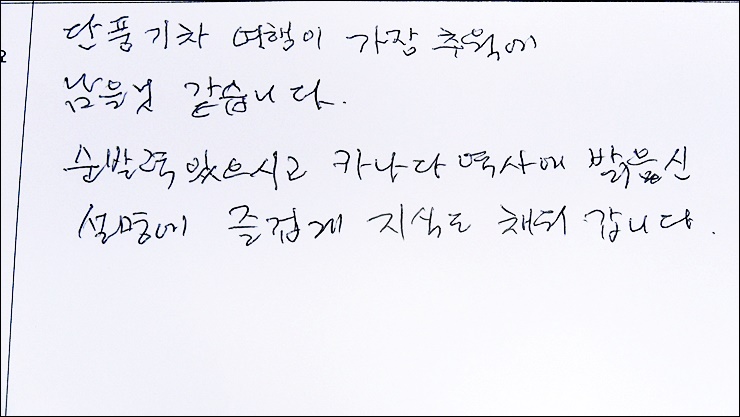 단풍기차 여행이 가장 추억에
남을것 같습니다.
순발력있으시고 카나다 역사에 밝으신
설명에 즐겁게 지식도 채워 갑니다.